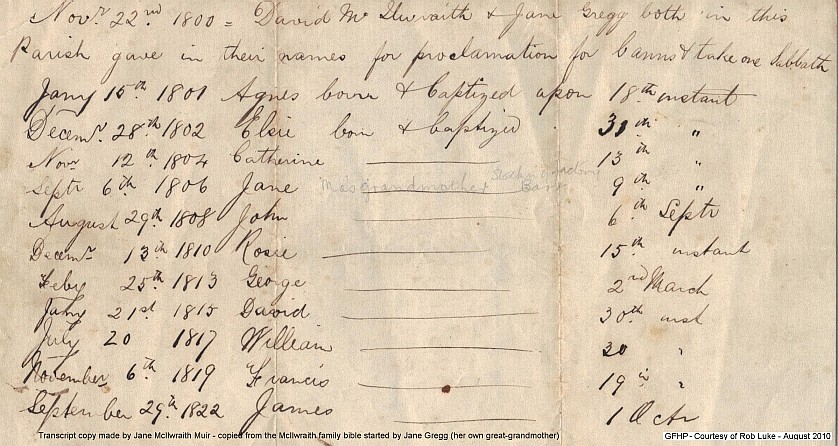 Novr. 22nd 1800 = David Mc Ilwraith & Jane Gregg both in this
Parish gave in their names for proclamation for banns & take one Sabbath
Jany 15th 1801 Agnes born & baptized upon 18th instant
Decemr. 28th 1802 Elsie born & baptized 31th "
Novr 12th 1804 Catherine 13th "
Septr 6th 1806 Jane Ma's grandmother 9th "
August 29th 1808 John 6th Septr
Decemr. 13th 1810 Rosie 15th instant
Feby 25th 1813 George 2nd March
Jany 21st 1815 David 30th inst
July 20 1817 William 20 "
November 6th 1819 Francis 19th "
September 29th 1822 James 1 Octr
Transcript copy made by Jane McIlwraith Muir - copied from the McIlwraith family bible started by Jane Gregg (her own great-grandmother)
GFHP - Courtesy of Rob Luke - August 2010